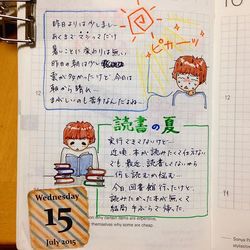 昨日よりは少しまし…
あくまでもちょっとだけ
暑いことに変わりは無い
昨日の朝は少し
雲が多かったけど今日は
朝から晴れ…
まぶしいのも苦手なんだよね…
ピカーッ
12
12
読書の夏
実行できないけど…
近頃本が読みたくて仕方ない
でも最近読書してないから
何を読むか悩む
今日図書館行ったけど、
読みたかった本が無くて
結局手ぶらで帰った。
Wednesday
15
July 2015
themselves why some are cheap.